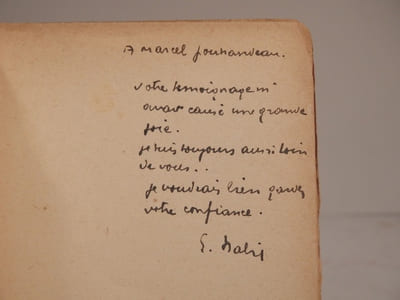 A Marcel Jouhandeau.
votre témoignage m'
avait causé une grande
joie.
je suis toujours aussi loin
de vous..
je voudrais bien garder
votre confiance.
E. Dabit